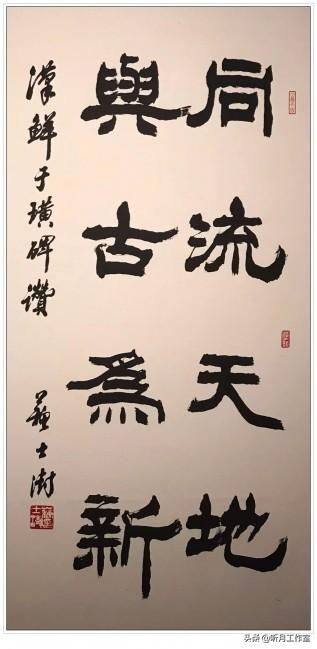 同流天地
與古爲新
漢鮮于璜碑讚
蘇士澍
头条 @昕月工作室